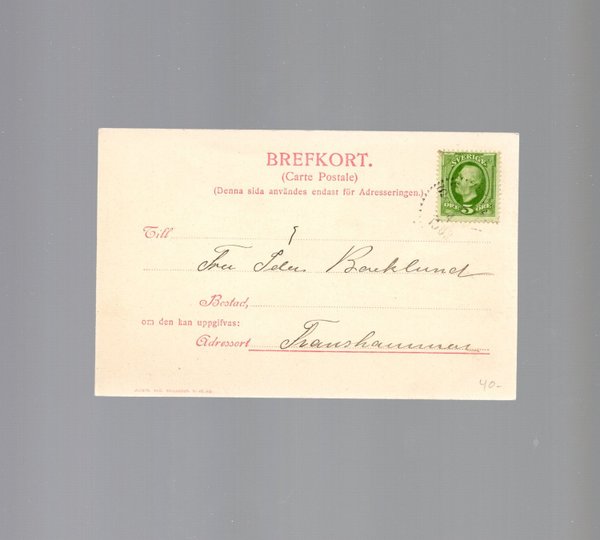 BREFKORT.
(Carte Postale)
(Denna sida användes endast för Adresseringen.)
SVERIGE
5
ÖRE ÖRE
Till
Fru Ida Backlund
Bostad,
om den kan uppgifvas:
Adressort Transhammar
40-